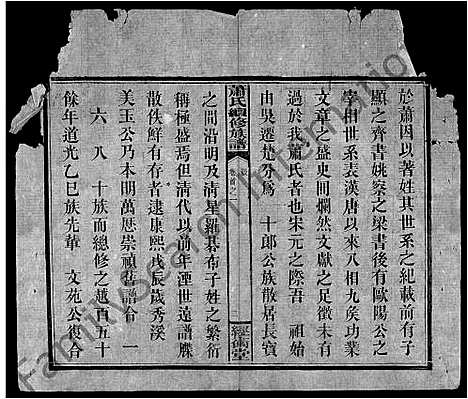 於蕭因以著姓其世系之紀載前有子
顯之齊書姚察之梁書後有歐陽公之
宰相世系表漢唐以來八相九侯功業
文章之盛史冊爛然文獻之足徵未有
過於我蕭氏者也宋元之際吾 祖始
由吳遷楚分為 十郎公族散居長寶
蕭氏續修族譜
卷首之
經術堂
之間沿明及清星羅棊布子姓之繁衍
稱極盛焉但清代以前年湮世遠譜牒
散佚鮮有存者逮康熙戊辰歲秀溪
美玉公乃本明萬厯崇禎舊譜合 一
六 八 十族而總修之越百五十
餘年道光乙巳族先輩 文苑公復合
FamilySearch International